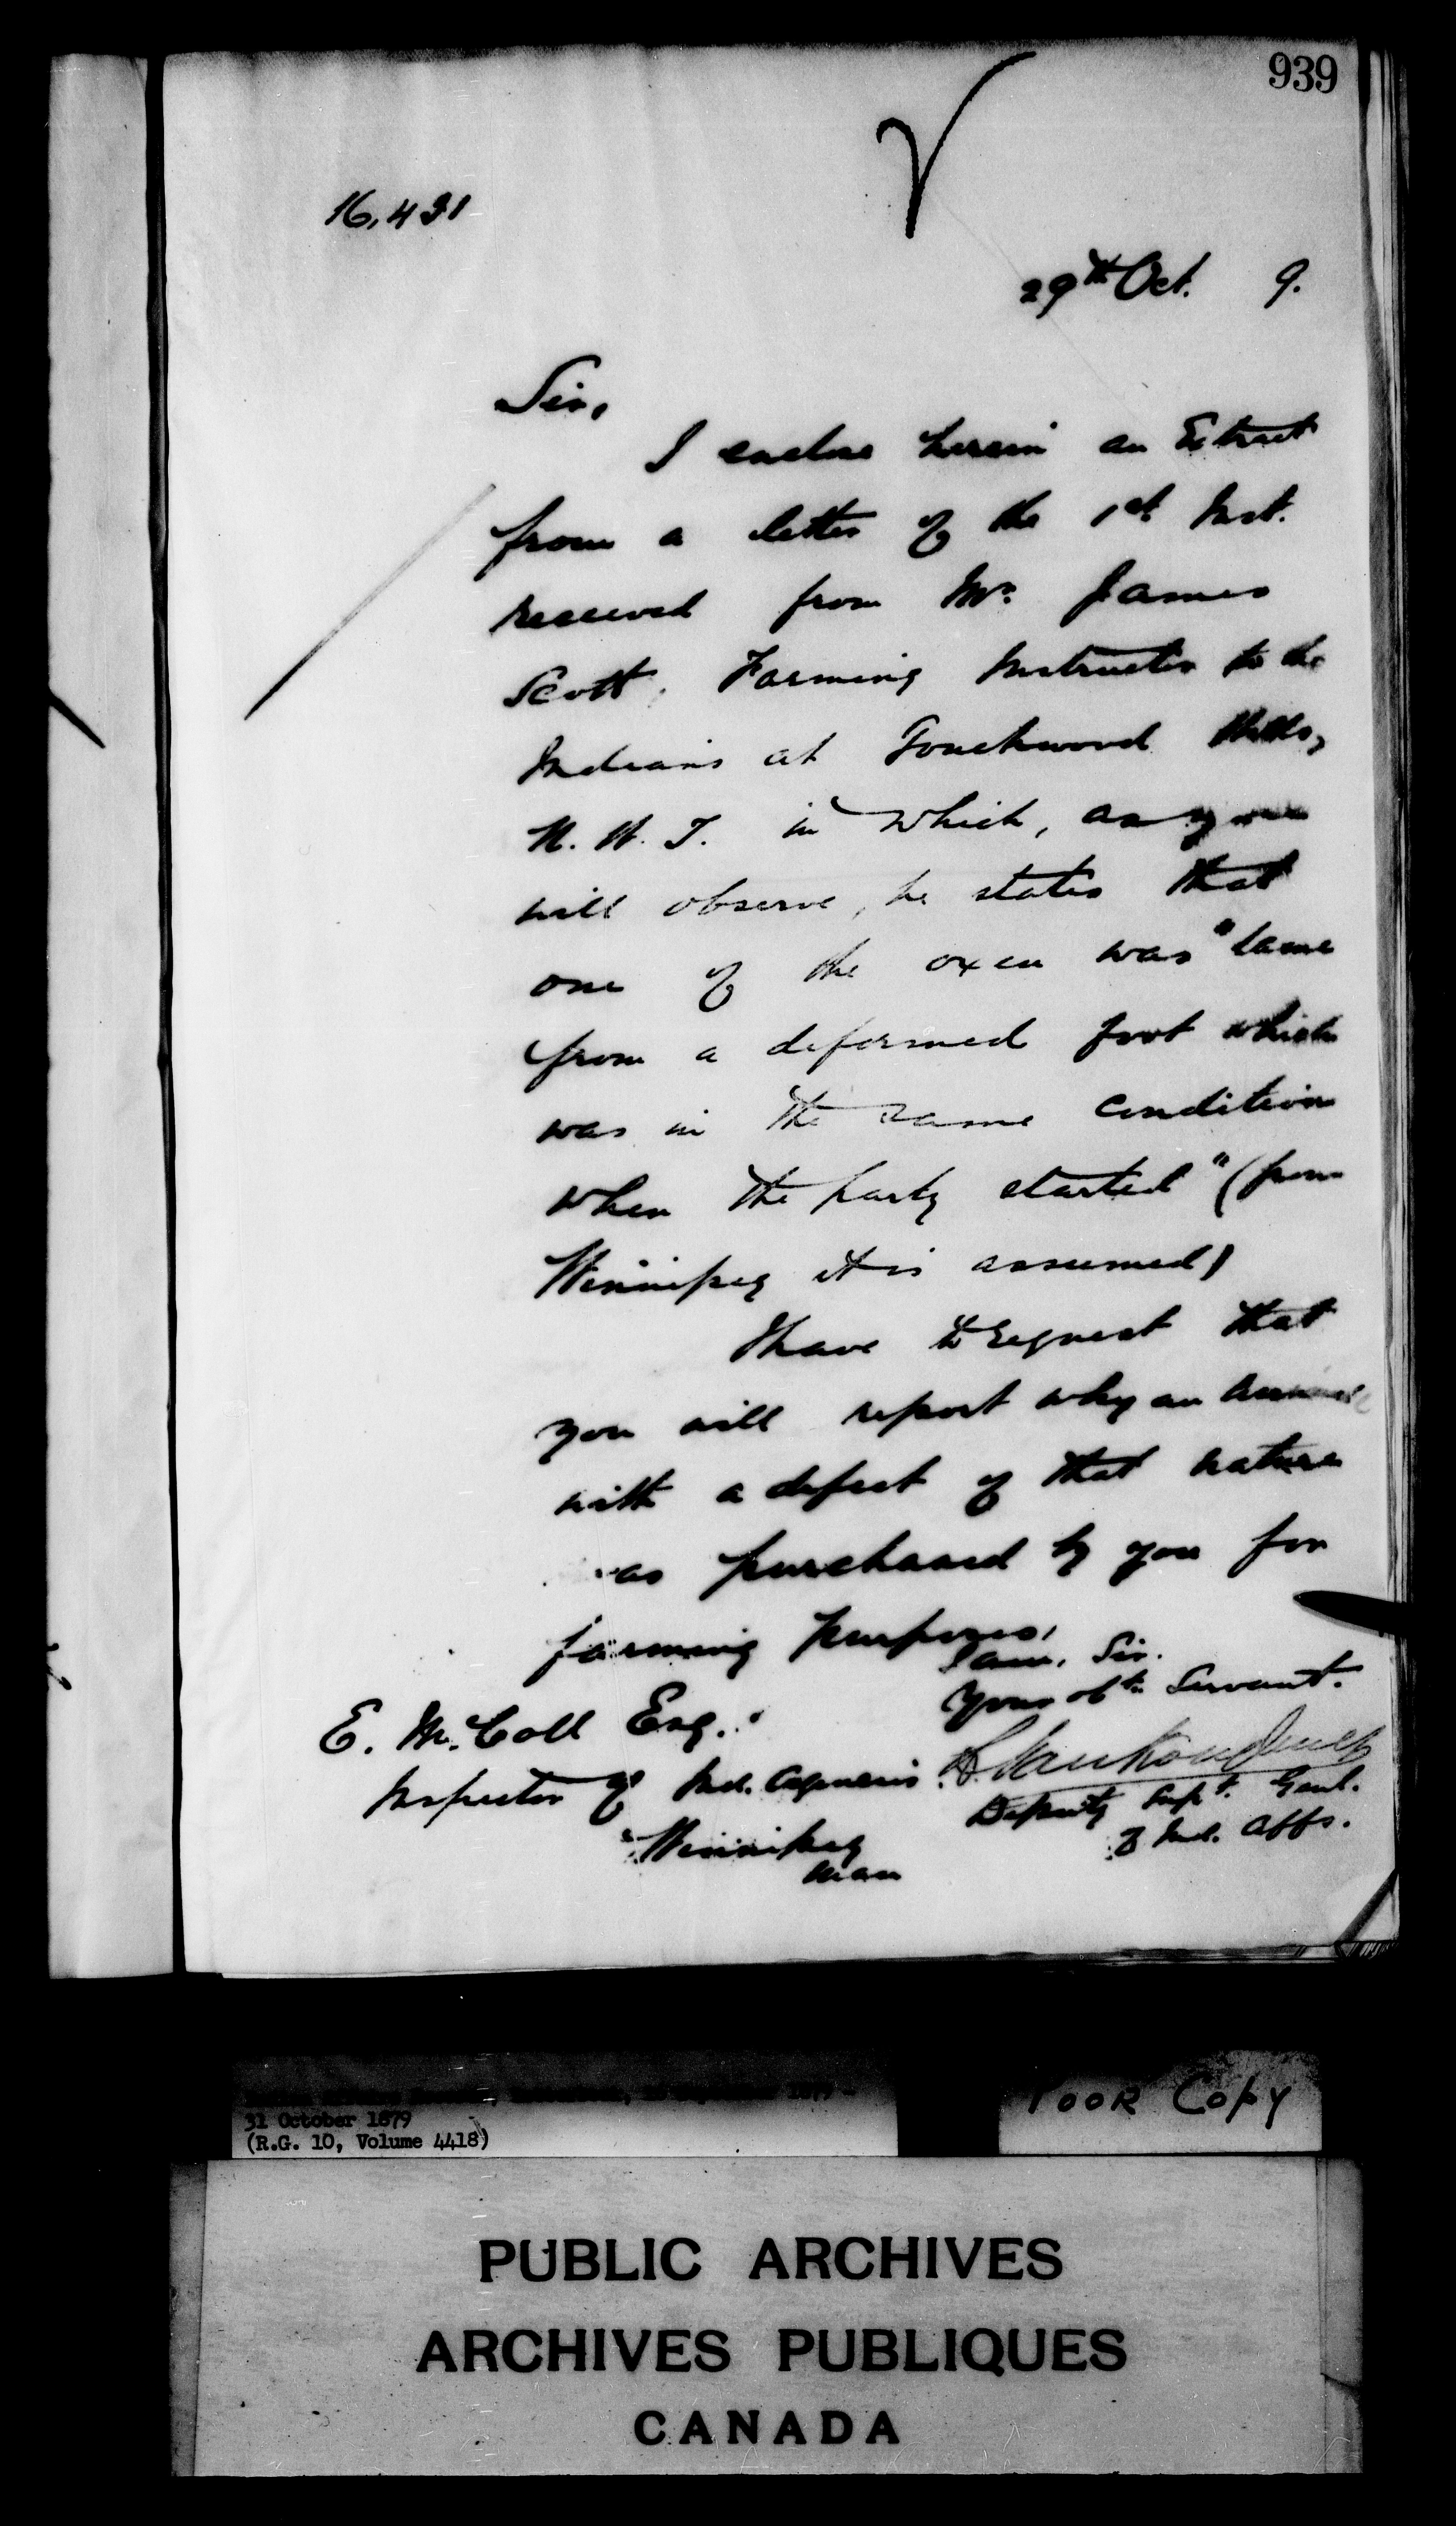 939
16,431
29th Oct. 9.
Sir,
I enclose herein an Extract
from a letter of the 1st Inst.
received from Mr. James
Scott, Farming Instructor to the
Indians at Touchwood Hills,
N. W. T. in which, as you
will observe, he states that
one of the oxen was "lame
from a deformed foot which
was in the same condition
when the party started" (from
Winnipeg it is assumed)
I have to request that
you will report why an animal
with a defect of that nature
was purchased by you for
farming purposes,
I am, Sir.
Your obt. Servant.
E. McColl Esq.
L. Vankoughnet
Inspector of Ind. Agencies.
Deputy Supt. Genl.
of Ind. Affs.
Winnipeg
Man
1879 -
31 October 1879
(R.G. 10, Volume 4418)
POOR COPY
PUBLIC ARCHIVES
ARCHIVES PUBLIQUES
CANADA